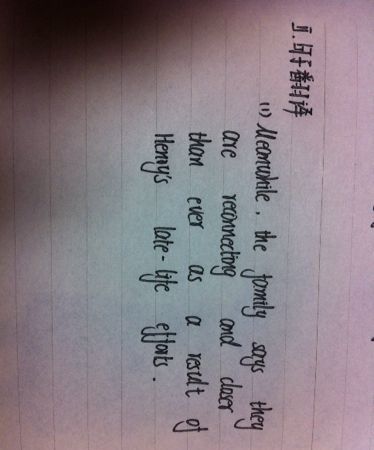 五.句子翻译
(1) Meanwhile, the family says they
are reconnecting and closer
than ever as a result of
Henry's late-life efforts.